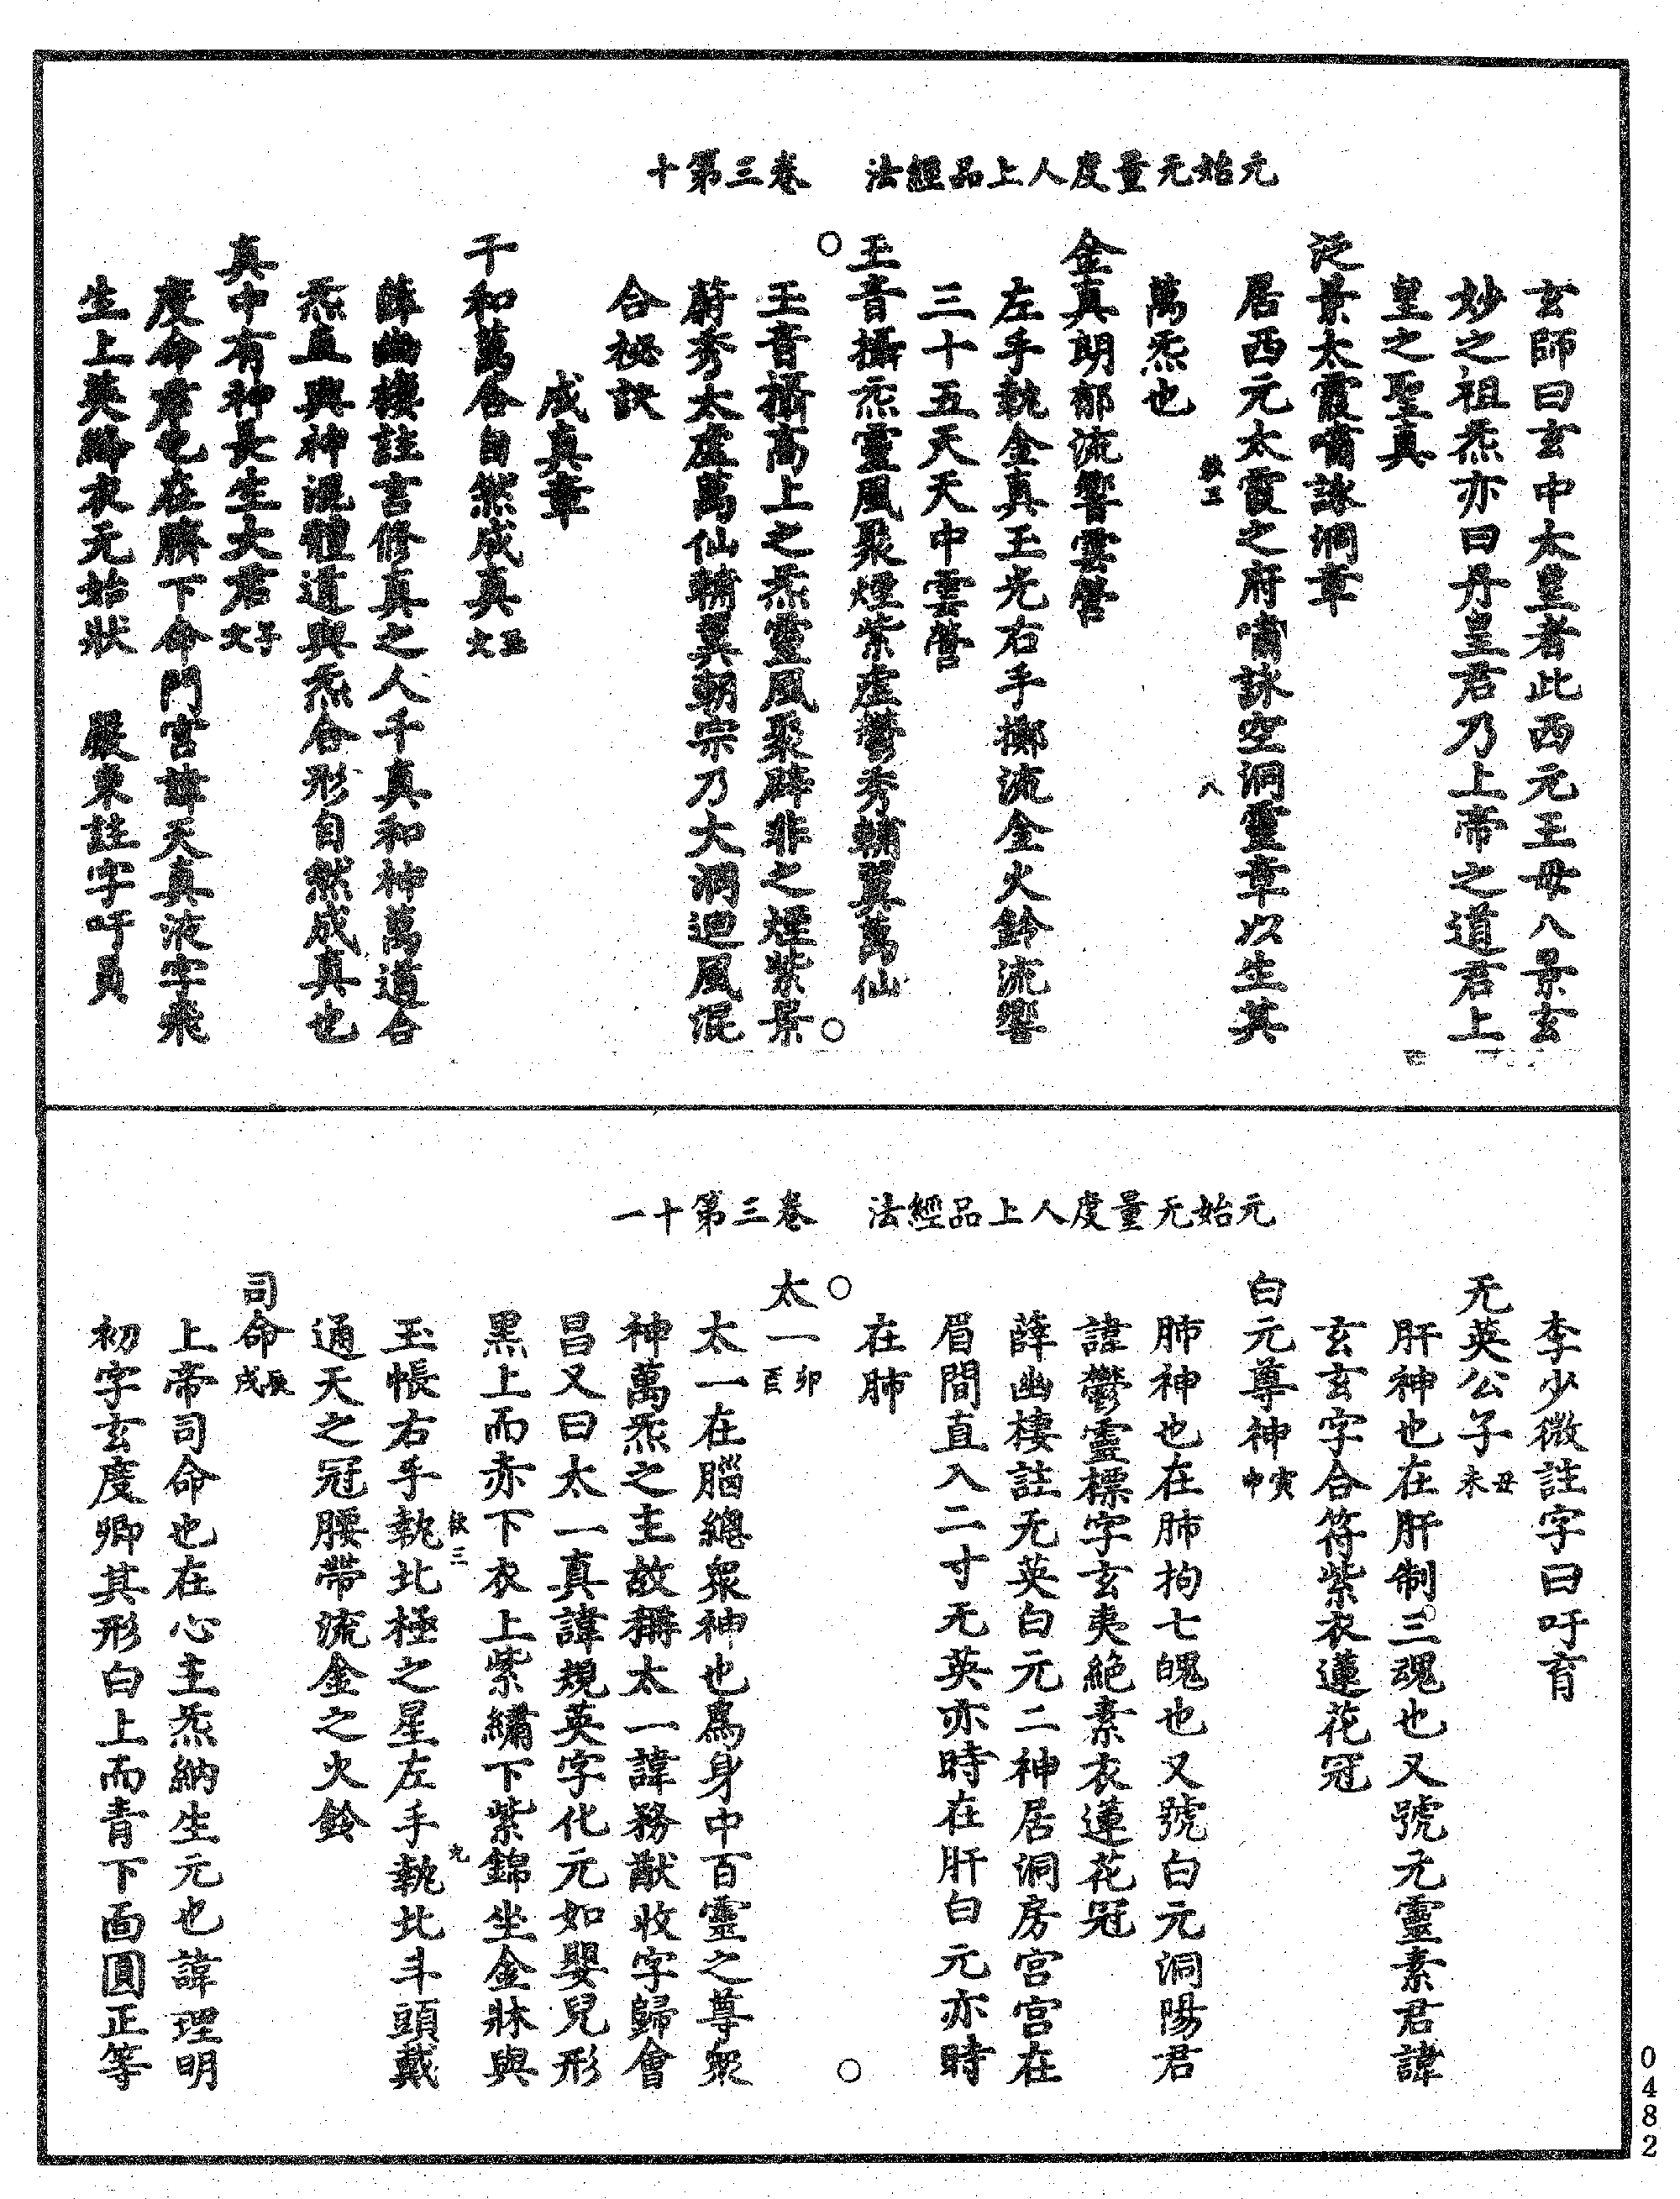 元始无量度人上品經法　卷三第十
玄師曰玄中太皇者此西元王母八景玄
妙之祖炁亦曰丹皇君乃上帝之道君上
皇之聖真
泛景太霞嘯詠洞章
居西元太霞之府嘯詠空洞靈章以生其
萬炁也
金真朗郁流響雲營
左手執金真玉光右手擲流金火鈴流響
三十五天天中雲營
玉音攝炁靈風聚煙紫虛鬱秀輔翼萬仙
玉音攝高上之炁靈風聚辟非之煙紫景
蔚秀太虛萬仙輔翼朝宗乃大洞迴風混
合祕訣
成真章
千和萬合自然成真
薛幽棲註言修真之人千真和神萬道合
炁直與神混體道與炁合形自然成真也
真中有神長生大君
度命君也在臍下命門宮諱天真液字飛
生上英歸衣无始狀　嚴東註字吁員
元始无量度人上品經法　卷三第十一
李少微註字曰吁育
无英公子丑未
肝神也在肝制三魂也又號无靈素君諱
玄玄字合符紫衣蓮花冠
白元尊神寅申
肺神也在肺拘七魄也又號白元洞陽君
諱鬱靈標字玄夷絕素衣蓮花冠
薛幽棲註无英白元二神居洞房宮宮在
眉間直入二寸无英亦時在肝白元亦時
在肺
太一卯酉
太一在腦總眾神也為身中百靈之尊眾
神萬炁之主故稱太一諱務猷收字歸會
昌又曰太一真諱規英字化元如嬰兒形
黑上而赤下衣上紫繡下紫錦坐金牀與
玉帳右手執北極之星左手執北斗頭戴
通天之冠腰帶流金之火鈴
司命辰戌
上帝司命也在心主炁納生元也諱理明
初字玄度卿其形白上而青下面圓正等
0482